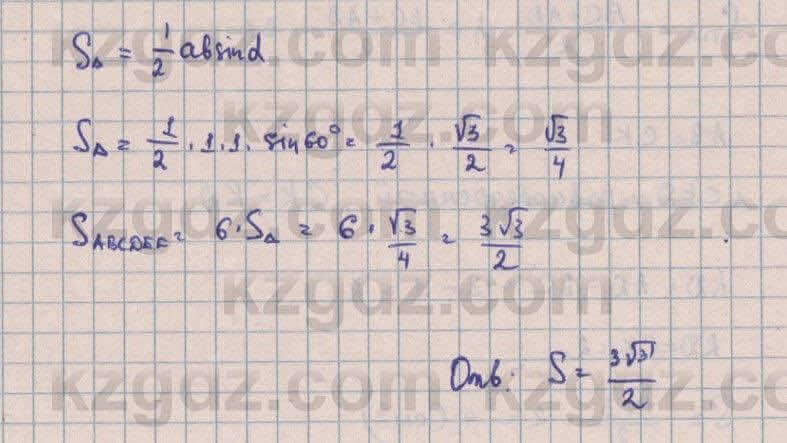 S△ = 1/2 absinα
S△ = 1/2 · 1 · 1 · sin60° = 1/2 · √3/2 = √3/4
SABCDEF = 6 · S△ = 6 · √3/4 = 3√3/2
Отв: S = 3√3/2
kzgdz.com
kzgdz.com
kzgdz.com
kzgdz.com
kzgdz.com
kzgdz.com